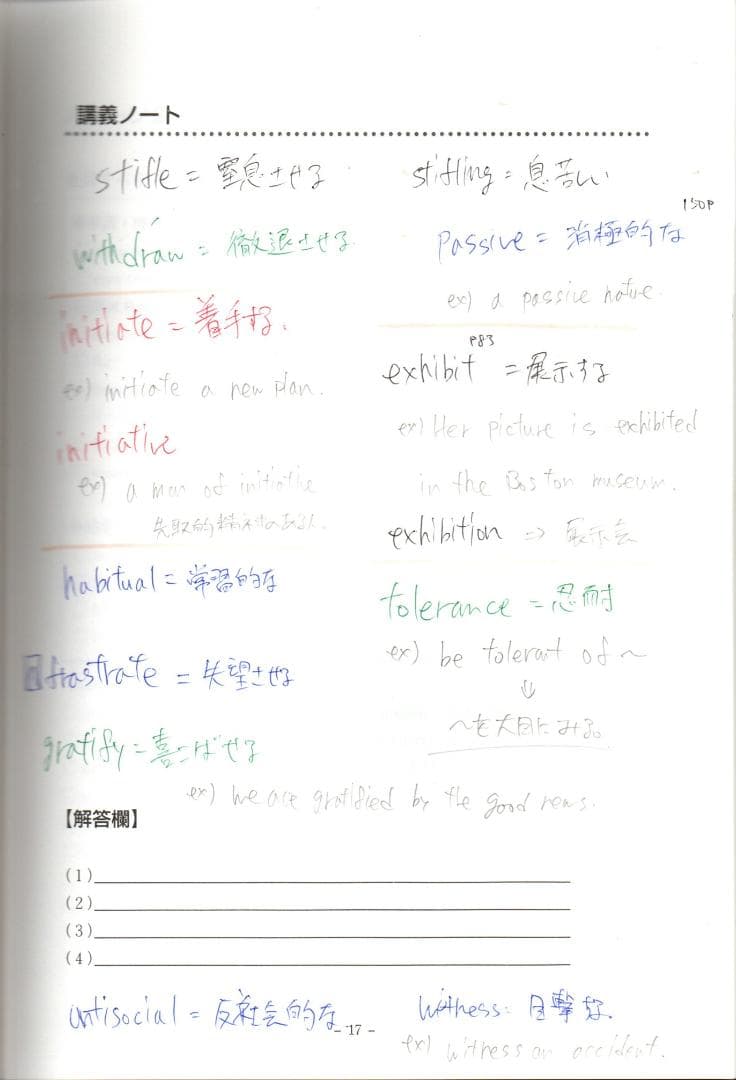 講義ノート
stifle = 窒息させる
withdraw = 撤退させる
initiate = 着手する.
ex) initiate a new plan.
initiative
ex) a man of initiative
先取的精神のある人.
habitual = 常習的な
frastrate = 失望させる
gratify = 喜こばせる
ex) We are gratified by the good news.
stifling = 息苦しい
150P
passive = 消極的な
ex) a passive nature.
P83
exhibit = 展示する
ex) Her picture is exhibited
in the Boston museum.
exhibition => 展示会
tolerance = 忍耐
ex) be tolerant of ~
⇓
~を大目にみる。
【解答欄】
(1)
(2)
(3)
(4)
antisocial = 反社会的な
witness: 目撃する.
ex) witness an accident.
- 17 -